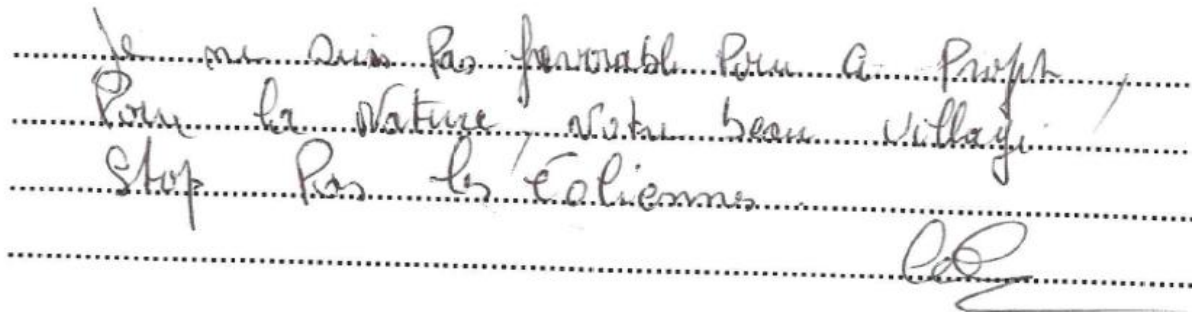 Je ne suis pas favorable Pour ce Projet,
Pour la Nature, Notre beau village
Stop Pas les éoliennes.